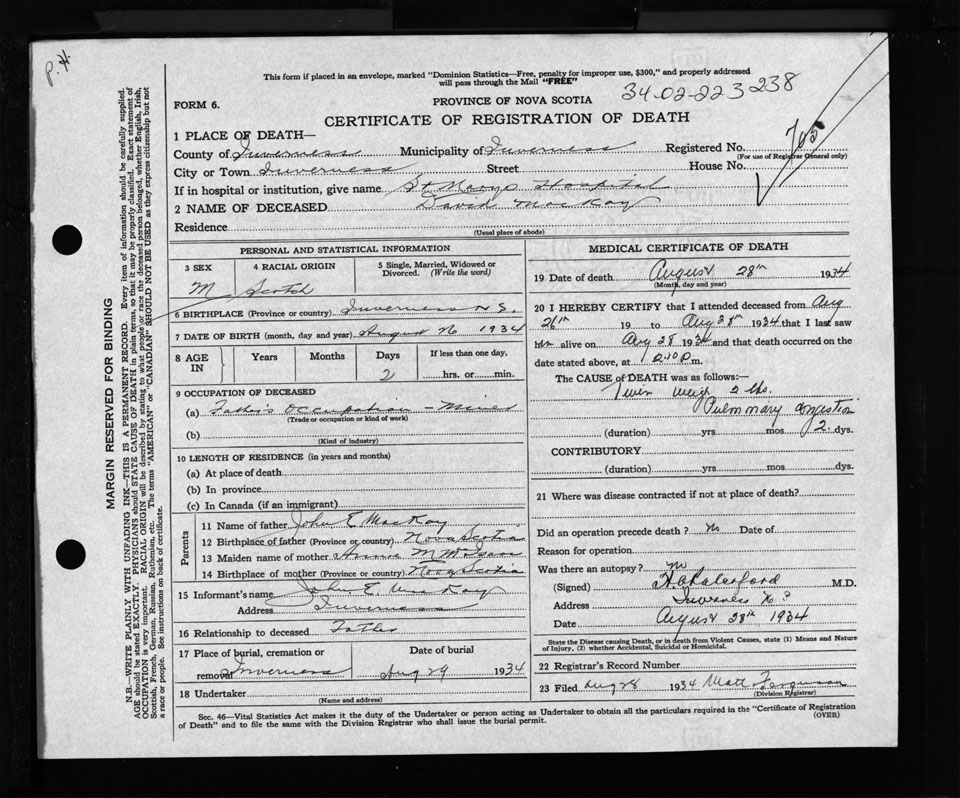 P. H.
This form if placed in an envelope, marked "Dominion Statistics—Free, penalty for improper use, $300," and properly addressed
will pass through the Mail "FREE"
34-02-223238
FORM 6.
PROVINCE OF NOVA SCOTIA
CERTIFICATE OF REGISTRATION OF DEATH
1 PLACE OF DEATH—
County of Inverness Municipality of Inverness Registered No.
705
(For use of Registrar General only)
City or Town Inverness Street House No.
If in hospital or institution, give name St Marys Hospital
2 NAME OF DECEASED David MacKay
Residence
(Usual place of abode)
PERSONAL AND STATISTICAL INFORMATION
3 SEX 4 RACIAL ORIGIN 5 Single, Married, Widowed or
Divorced. (Write the word)
M Scotch
6 BIRTHPLACE (Province or country) Inverness N S.
7 DATE OF BIRTH (month, day and year) August 26 1934
8 AGE IN Years Months Days If less than one day,
2 hrs. or min.
9 OCCUPATION OF DECEASED
(a) Father's Occupation - Miner
(Trade or occupation or kind of work)
(b)
(Kind of industry)
10 LENGTH OF RESIDENCE (in years and months)
(a) At place of death
(b) In province
(c) In Canada (if an immigrant)
Parents
11 Name of father John E MacKay
12 Birthplace of father (Province or country) Nova Scotia
13 Maiden name of mother Annie M
14 Birthplace of mother (Province or country) Nova Scotia
15 Informant's name John E. MacKay
Address Inverness
16 Relationship to deceased Father
17 Place of burial, cremation or Date of burial
removal Inverness Aug 29 1934
18 Undertaker
(Name and address)
MEDICAL CERTIFICATE OF DEATH
19 Date of death August 28th 1934
(Month, day and year)
20 I HEREBY CERTIFY that I attended deceased from Aug
26th 19 to Aug 28th 1934 that I last saw
him alive on Aug 28 1934 and that death occurred on the
date stated above, at m.
The CAUSE OF DEATH was as follows:—
Twin weigh 2 lbs.
Pulmonary Congestion
(duration) yrs. mos. 2 dys.
CONTRIBUTORY
(duration) yrs. mos. dys.
21 Where was disease contracted if not at place of death?
Did an operation precede death? No Date of
Reason for operation
Was there an autopsy? No
(Signed) M.D.
Address Inverness
Date August 28th 1934
State the Disease causing Death, or in death from Violent Causes, state (1) Means and Nature
of Injury, (2) whether Accidental, Suicidal or Homicidal.
22 Registrar's Record Number
23 Filed Aug 28 1934 Matt. Ferguson
(Division Registrar)
Sec. 46—Vital Statistics Act makes it the duty of the Undertaker or person acting as Undertaker to obtain all the particulars required in the "Certificate of Registration
of Death" and to file the same with the Division Registrar who shall issue the burial permit.
(OVER)
MARGIN RESERVED FOR BINDING
N.B.—WRITE PLAINLY WITH UNFADING INK—THIS IS A PERMANENT RECORD. Every item of information should be carefully supplied.
AGE should be stated EXACTLY. PHYSICIANS should STATE CAUSE OF DEATH in plain terms, so that it may be properly classified. Exact statement of
OCCUPATION is very important. RACIAL ORIGIN will be described by stating to what people or race the deceased person belonged, whether English, Irish,
Scottish, French, German, Russian, Ruthenian, etc. The terms "AMERICAN" or "CANADIAN" SHOULD NOT BE USED as they express citizenship but not
a race or people. See instructions on back of certificate.